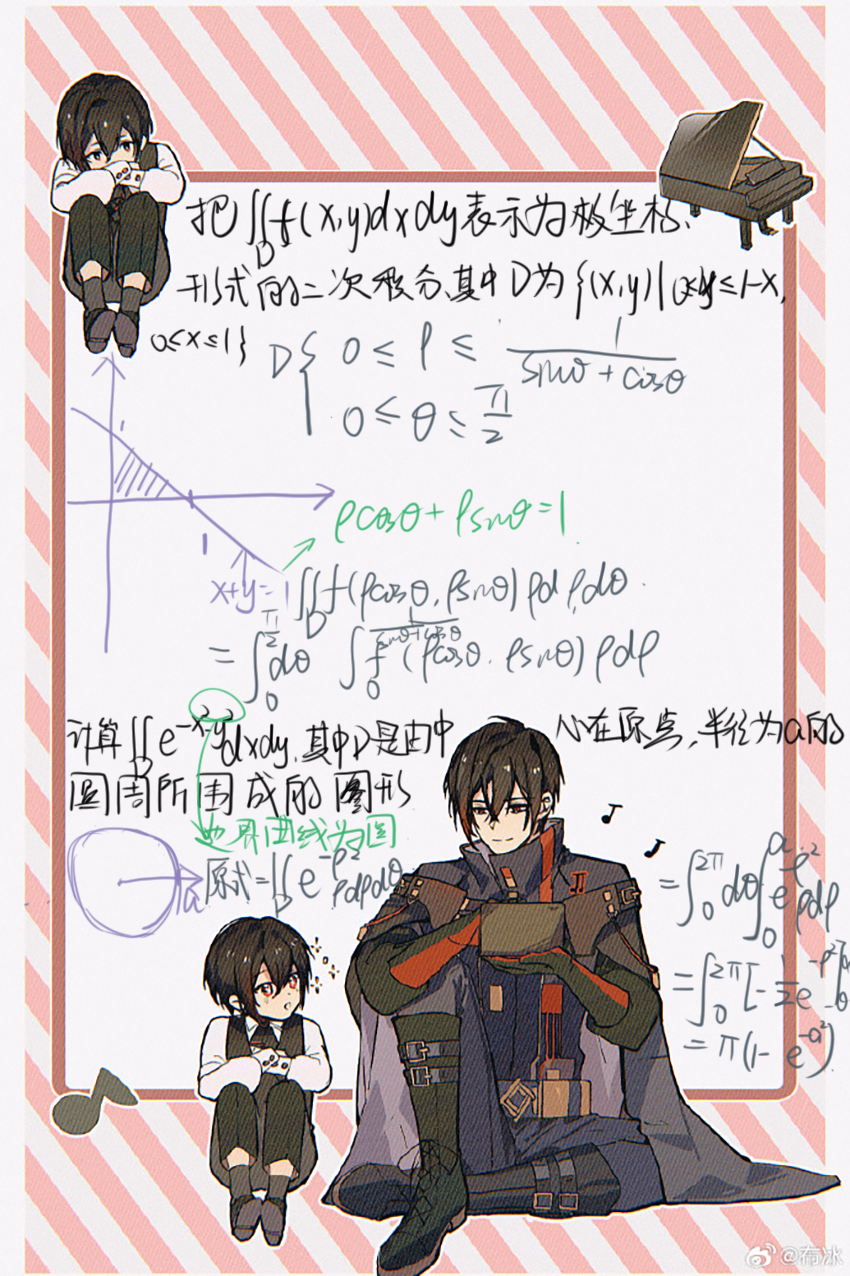 把∬_D f(x,y)dxdy表示为极坐标
形式的二次积分,其中D为{(x,y)|0≤y≤1-x,
0≤x≤1}
D{ 0 ≤ ρ ≤ 1/(sinθ+cosθ)
0 ≤ θ ≤ π/2
1
1
ρcosθ+ρsinθ=1
x+y=1
∬_D f(ρcosθ,ρsinθ)ρdρdθ.
=∫_0^{π/2}dθ ∫_0^{1/(sinθ+cosθ)} f(ρcosθ,ρsinθ)ρdρ
计算∬_D e^{-x²-y²}dxdy,其中D是由中心在原点,半径为a的
圆周所围成的图形
边界曲线为圆
a
原式=∬_D e^{-ρ²}ρdρdθ
=∫_0^{2π}dθ∫_0^a e^{-ρ²}ρdρ
=∫_0^{2π}[-1/2 e^{-ρ²}]_0
=π(1-e^{-a²})
@布冰